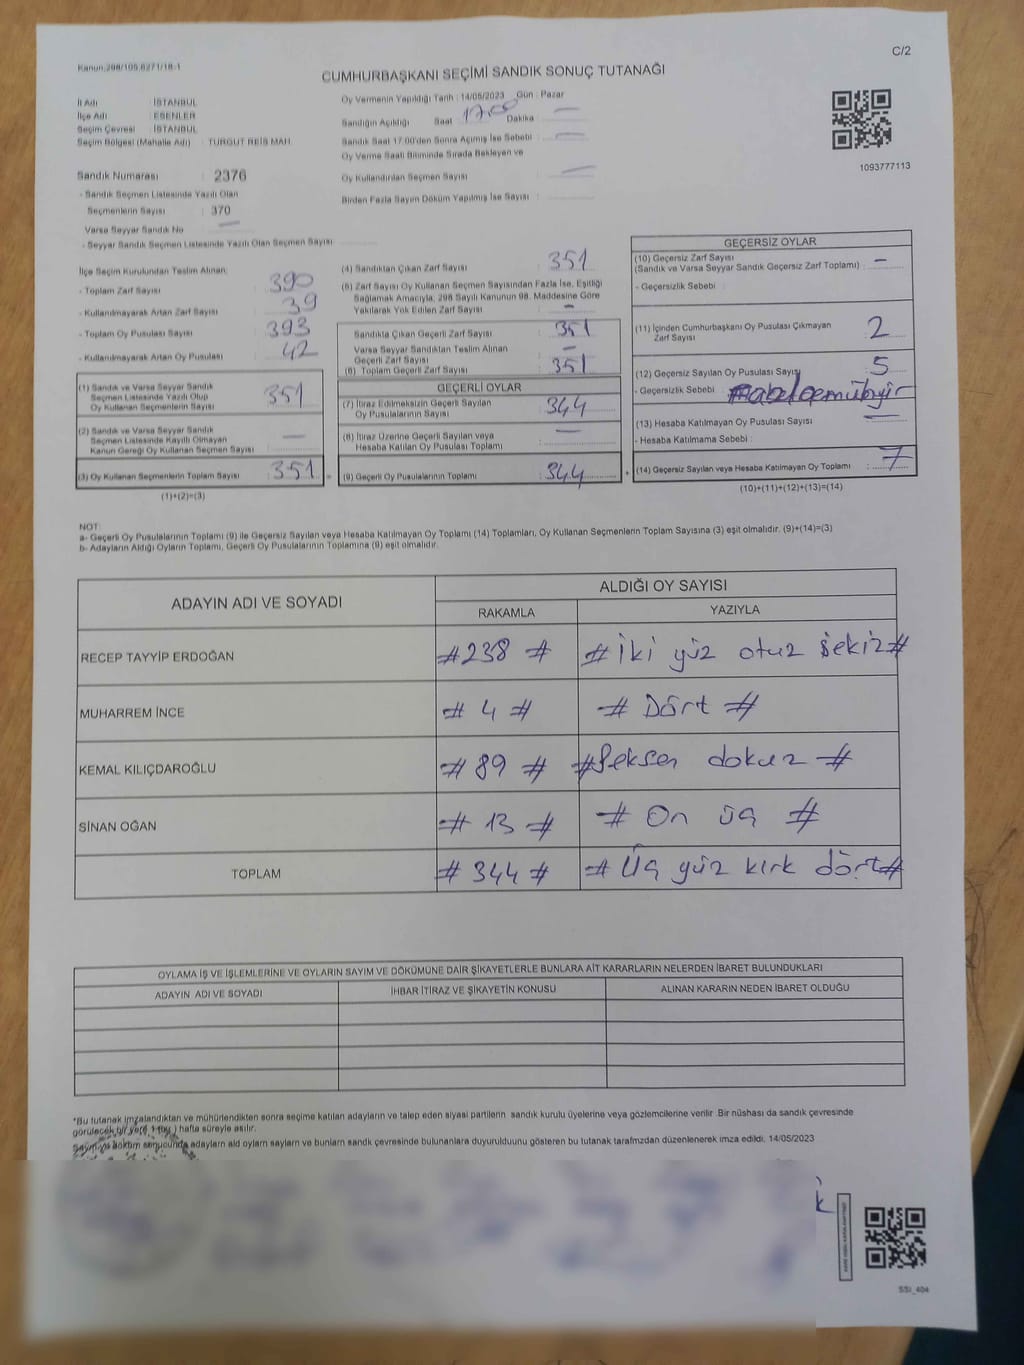 C/2
Kanun.298/105.6271/18-1
CUMHURBAŞKANI SEÇİMİ SANDIK SONUÇ TUTANAĞI
İl Adı : İSTANBUL
İlçe Adı : ESENLER
Seçim Çevresi : İSTANBUL
Seçim Bölgesi (Mahalle Adı) : TURGUT REİS MAH.
Sandık Numarası : 2376
- Sandık Seçmen Listesinde Yazılı Olan
Seçmenlerin Sayısı : 370
Varsa Seyyar Sandık No —
- Seyyar Sandık Seçmen Listesinde Yazılı Olan Seçmen Sayısı
Oy Vermenin Yapıldığı Tarih : 14/05/2023 Gün : Pazar
Sandığın Açıldığı Saat 17.00 Dakika —
Sandık Saat 17:00'den Sonra Açımış İse Sebebi —
Oy Verme Saati Bitiminde Sırada Bekleyen ve
Oy Kullandırılan Seçmen Sayısı —
Birden Fazla Sayım Döküm Yapılmış İse Sayısı
1093777113
İlçe Seçim Kurulundan Teslim Alınan:
- Toplam Zarf Sayısı : 390
- Kullanılmayarak Artan Zarf Sayısı : 39
- Toplam Oy Pusulası Sayısı : 393
- Kullanılmayarak Artan Oy Pusulası : 42
(1) Sandık ve Varsa Seyyar Sandık
Seçmen Listesinde Yazılı Olup
Oy Kullanan Seçmenlerin Sayısı : 351
(2) Sandık ve Varsa Seyyar Sandık
Seçmen Listesinde Kayıtlı Olmayan
Kanun Gereği Oy Kullanan Seçmen Sayısı : —
(3) Oy Kullanan Seçmenlerin Toplam Sayısı : 351
(1)+(2)=(3)
(4) Sandıktan Çıkan Zarf Sayısı : 351
(5) Zarf Sayısı Oy Kullanan Seçmen Sayısından Fazla İse, Eşitliği
Sağlamak Amacıyla, 298 Sayılı Kanunun 98. Maddesine Göre
Yakılarak Yok Edilen Zarf Sayısı : —
Sandıkta Çıkan Geçerli Zarf Sayısı : 351
Varsa Seyyar Sandıktan Teslim Alınan
Geçerli Zarf Sayısı : —
(6) Toplam Geçerli Zarf Sayısı : 351
GEÇERLİ OYLAR
(7) İtiraz Edilmeksizin Geçerli Sayılan
Oy Pusulalarının Sayısı : 344
(8) İtiraz Üzerine Geçerli Sayılan veya
Hesaba Katılan Oy Pusulası Toplamı : —
(9) Geçerli Oy Pusulalarının Toplamı : 344
GEÇERSİZ OYLAR
(10) Geçersiz Zarf Sayısı
(Sandık ve Varsa Seyyar Sandık Geçersiz Zarf Toplamı) : —
- Geçersizlik Sebebi :
(11) İçinden Cumhurbaşkanı Oy Pusulası Çıkmayan
Zarf Sayısı : 2
(12) Geçersiz Sayılan Oy Pusulası Sayısı : 5
- Geçersizlik Sebebi :
(13) Hesaba Katılmayan Oy Pusulası Sayısı —
- Hesaba Katılmama Sebebi :
(14) Geçersiz Sayılan veya Hesaba Katılmayan Oy Toplamı : 7
(10)+(11)+(12)+(13)=(14)
NOT:
a- Geçerli Oy Pusulalarının Toplamı (9) ile Geçersiz Sayılan veya Hesaba Katılmayan Oy Toplamı (14) Toplamları, Oy Kullanan Seçmenlerin Toplam Sayısına (3) eşit olmalıdır. (9)+(14)=(3)
b- Adayların Aldığı Oyların Toplamı, Geçerli Oy Pusulalarının Toplamına (9) eşit olmalıdır.
ADAYIN ADI VE SOYADI
ALDIĞI OY SAYISI
RAKAMLA YAZIYLA
RECEP TAYYİP ERDOĞAN #238 # # İki yüz otuz Sekiz#
MUHARREM İNCE # 4 # # Dört #
KEMAL KILIÇDAROĞLU # 89 # #Seksen dokuz #
SİNAN OĞAN # 13 # # On üç #
TOPLAM # 344 # # Üç yüz kırk dört#
OYLAMA İŞ VE İŞLEMLERİNE VE OYLARIN SAYIM VE DÖKÜMÜNE DAİR ŞİKAYETLERLE BUNLARA AİT KARARLARIN NELERDEN İBARET BULUNDUKLARI
ADAYIN ADI VE SOYADI İHBAR İTİRAZ VE ŞİKAYETİN KONUSU ALINAN KARARIN NEDEN İBARET OLDUĞU
*Bu tutanak imzalandıktan ve mühürlendikten sonra seçime katılan adayların ve talep eden siyasi partilerin sandık kurulu üyelerine veya gözlemcilerine verilir. Bir nüshası da sandık çevresinde
görülecek bir yere 1 (bir) hafta süreyle asılır.
Sayım ve döküm sonucunda adayların ald oyların sayların ve bunların sandk çevresinde bulunanlara duyurulduunu gösteren bu tutanak tarafmzdan düzenlenerek imza edildi. 14/05/2023
SSI_404